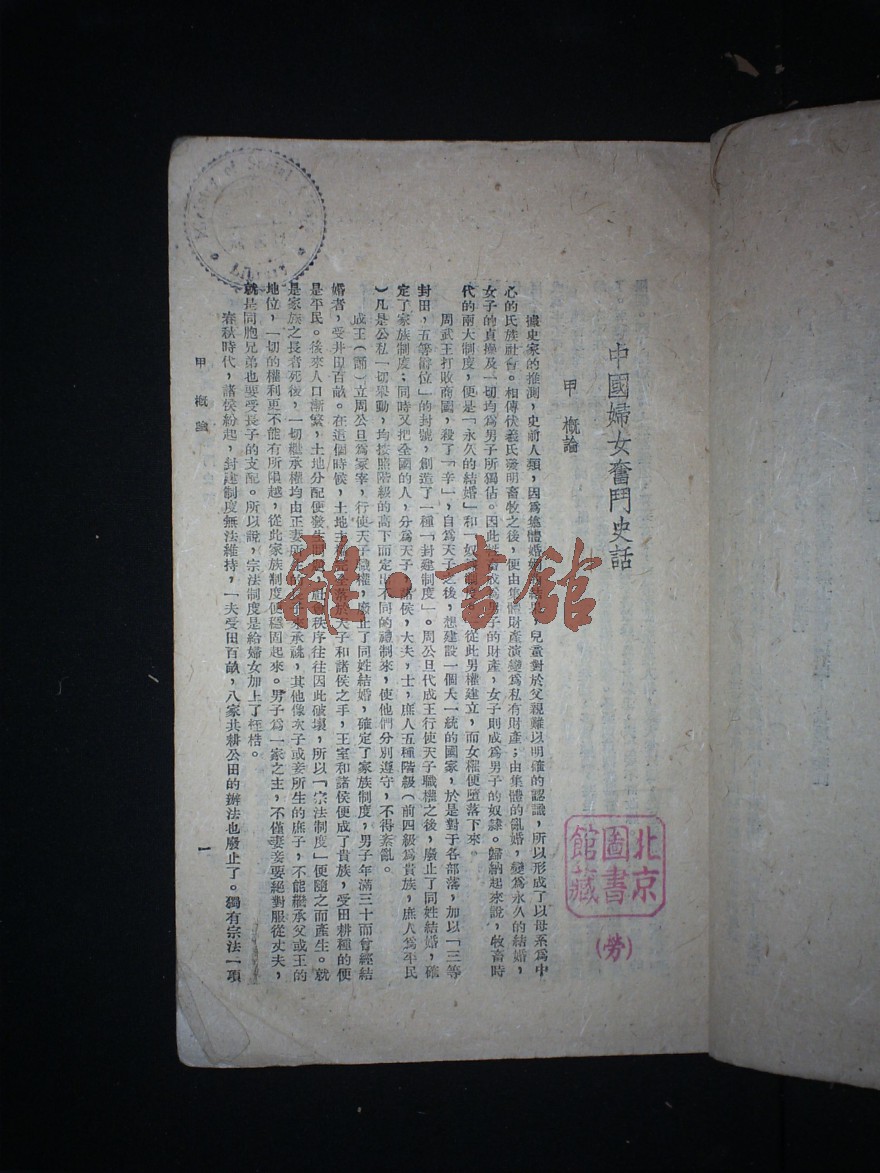 中國婦女奮鬥史話
甲 概論
據史家的推測，史前人類，因爲集體婚姻的結果，兒童對於父親難以明確的認識，所以形成了以母系爲中
心的氏族社會。相傳伏羲氏發明畜牧之後，便由集體財產演變爲私有財產；由集體的亂婚，變爲永久的結婚，
女子的貞操及一切均爲男子所獨佔。因此牲畜成爲男子的財產，女子則成爲男子的奴隸。歸納起來說，牧畜時
代的兩大制度，便是「永久的結婚」和「奴 從此男權建立，而女權便墮落下來。
周武王打敗商國，殺了「辛」，自爲天子之後，想建設一個大一統的國家，於是對于各部落，加以「三等
封田，五等爵位」的封號，創造了一種「封建制度」。周公旦代成王行使天子職權之後，廢止了同姓結婚，確
定了家族制度；同時又把全國的人，分爲天子，諸侯，大夫，士，庶人五種階級（前四級爲貴族，庶人爲平民
）凡是公私一切舉動，均按照階級的高下而定出不同的禮制來，使他們分別遵守，不得紊亂。
成王（誦）立周公旦爲冢宰，行使天子職權，廢止了同姓結婚，確定了家族制度，男子年滿三十而曾經結
婚者，受井田百畝。在這個時候，土地 完全落於天子和諸侯之手，王室和諸侯便成了貴族，受田耕種的便
是平民。後來人口漸繁，土地分配便發生問題，社會秩序往往因此破壞，所以「宗法制度」便隨之而產生。就
是家族之長者死後，一切繼承權均由正妻所生的 子來承祧，其他像次子或妾所生的庶子，不能繼承父或王的
地位，一切的權利更不能有所隕越，從此家族制度便穩固起來。男子爲一家之主，不僅妻妾要絕對服從丈夫，
就是同胞兄弟也要受長子的支配。所以說，宗法制度是給婦女加上了桎梏。
春秋時代，諸侯紛起，封建制度無法維持，一夫受田百畝，八家共耕公田的辦法也廢止了。獨有宗法一項
甲 概論
一
北京
圖書
館藏
（勞）
雜·書館
Ministry of Social